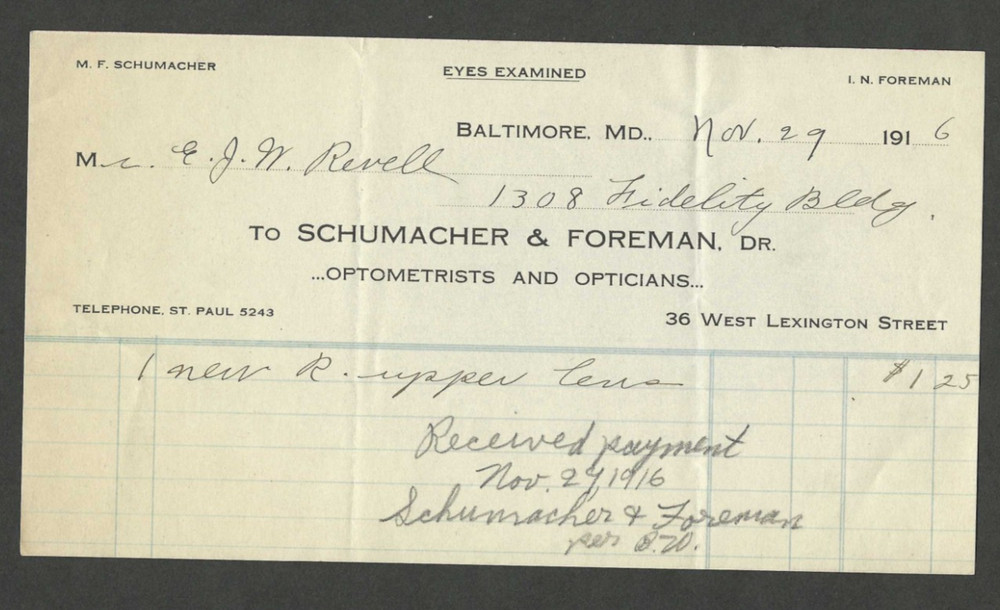 M. F. SCHUMACHER
EYES EXAMINED
I. N. FOREMAN
BALTIMORE, MD., Nov. 29 1916
Mr. E. J. W. Revell
1308 Fidelity Bldg.
TO SCHUMACHER & FOREMAN, DR.
...OPTOMETRISTS AND OPTICIANS...
TELEPHONE, ST. PAUL 5243
36 WEST LEXINGTON STREET
1 new R. upper lens $1 25
Received payment
Nov. 29, 1916
Schumacher & Foreman
per B.W.